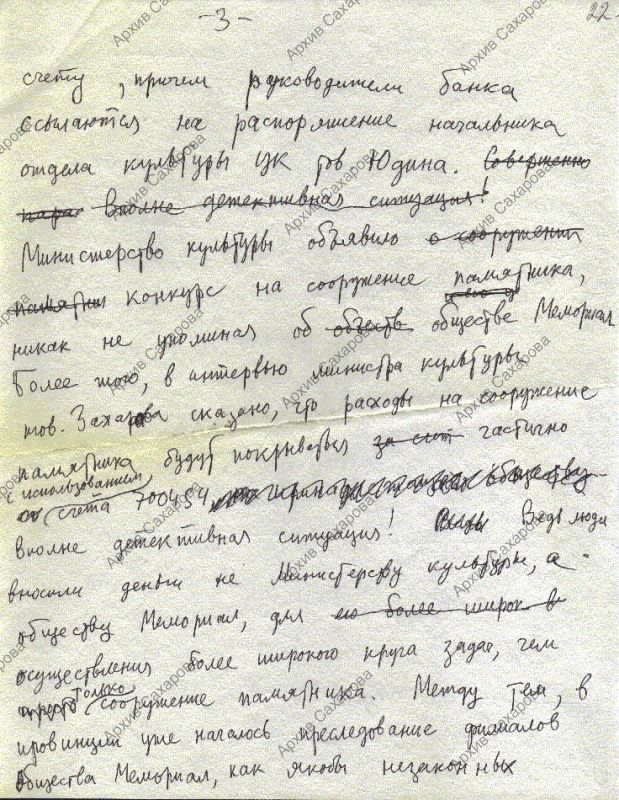 -3-
22
счету, причем руководители банка
ссылаются на распоряжение начальника
отдела культуры ЦК тов Юдина. Совершенно
пара вполне детективная ситуация!
Министерство культуры объявило о сооружении
памятни конкурс на сооружение памятника,
никак не упоминая об обществ обществе Мемориал
Более того, в интервью министра культуры
тов. Захарова сказано, что расходы на сооружение
памятника будут покрываться за счет частично
с использованием
счета 700454,
вполне детективная ситуация! Ведь люди
вносили деньги не Министерству культуры, а
обществу Мемориал, для его более широк в
осуществления более широкого круга задач, чем
только
просто сооружение памятника. Между тем, в
провинции уже началось преследование филиалов
общества Мемориал, как якобы незаконных
Архив Сахарова